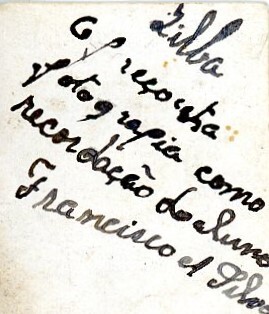 Silva
O f reçousta
fotografia como
recordação do aluno
Francisco A Silva